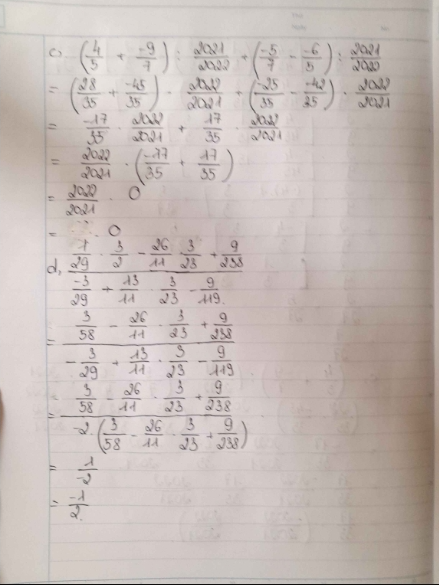 c) (4/5 + -9/7) : 2021/2022 + (-5/7 - -6/5) : 2021/2022
= (28/35 + -45/35) . 2022/2021 + (-25/35 - -42/35) . 2022/2021
= -17/35 . 2022/2021 + 17/35 . 2022/2021
= 2022/2021 . (-17/35 + 17/35)
= 2022/2021 . 0
= 0
d, (1/29 . 3/2 - 26/11 . 3/23 + 9/238) / (-3/29 + 13/11 . 3/23 - 9/119)
= (3/58 - 26/11 . 3/23 + 9/238) / (-3/29 + 13/11 . 3/23 - 9/119)
= (3/58 - 26/11 . 3/23 + 9/238) / (-2 . (3/58 - 26/11 . 3/23 + 9/238))
= 1/-2
= -1/2